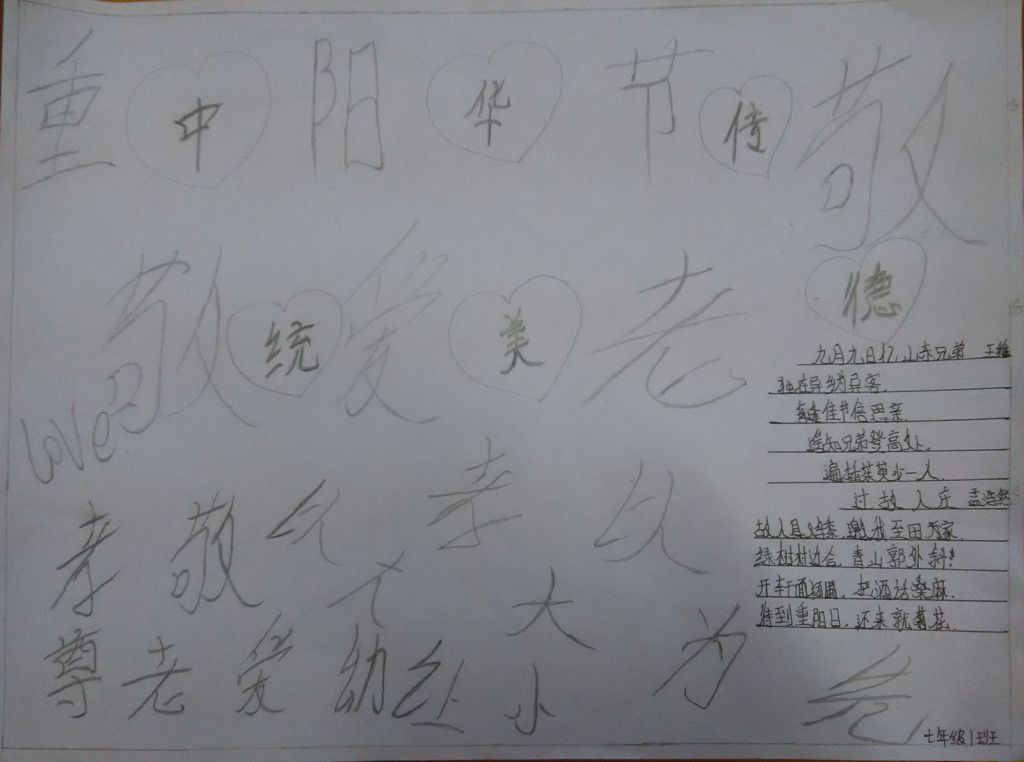 重中阳华节传敬
敬统爱美老德
love
九月九日忆山东兄弟 王维
独在异乡为异客,
每逢佳节倍思亲.
遥知兄弟登高处,
遍插茱萸少一人.
过故人庄 孟浩然
故人具鸡黍,邀我至田家.
绿树村边合,青山郭外斜!
开轩面场圃,把酒话桑麻.
待到重阳日,还来就菊花.
孝敬 孝
大
尊老爱幼 小 为
七年级1班